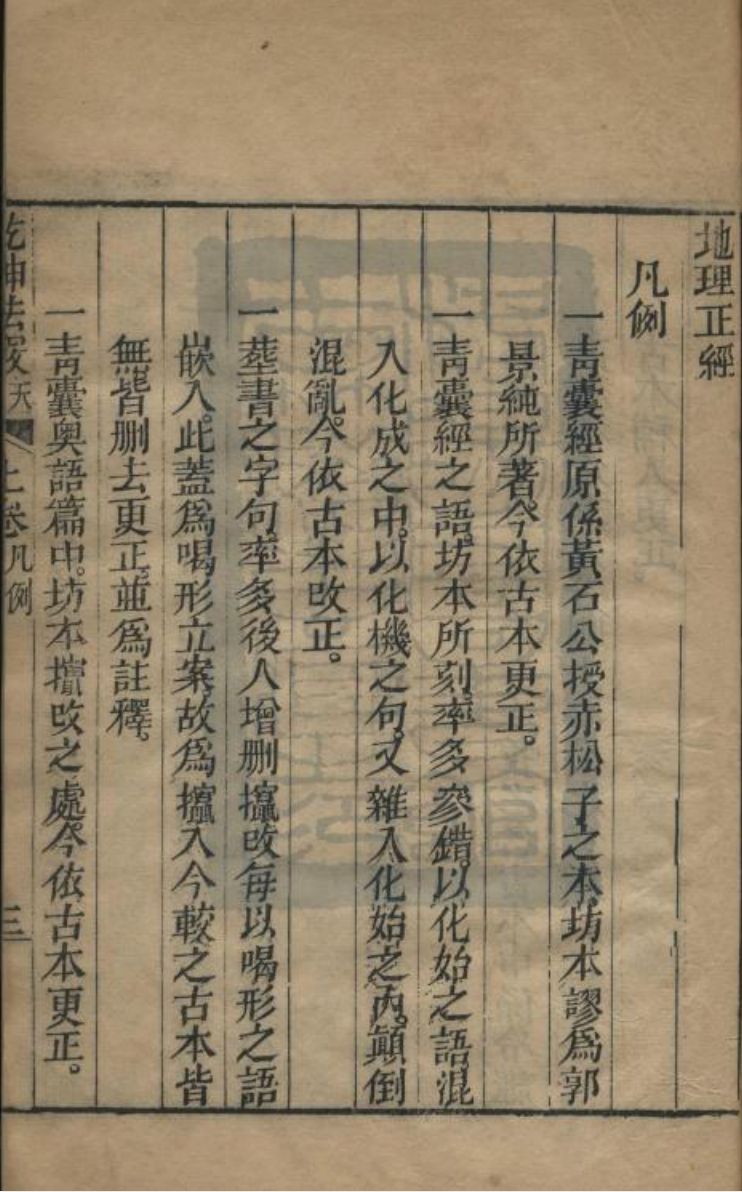 地理正經
凡例
一青囊經原係黃石公授赤松子之本坊本謬爲郭
景純所著今依古本更正。
一青囊經之語坊本所刻率多叅錯以化始之語混
入化成之中。以化機之句又雜入化始之內顚倒
混亂今依古本改正。
一葬書之字句率多後人增刪攛改每以喝形之語
嵌入。此蓋爲喝形立案故爲攛入今較之古本皆
無皆刪去更正。並爲註釋。
一靑囊奧語篇中。坊本攢改之處今依古本更正。
乾坤法竅 天 上卷凡例 三